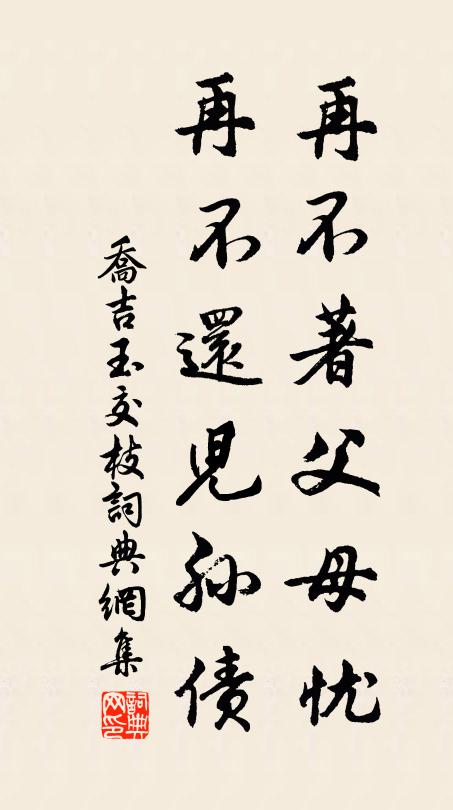 再不著父母忧
再不還児孙债
喬吉玉交枝詞典網集
詞典网印